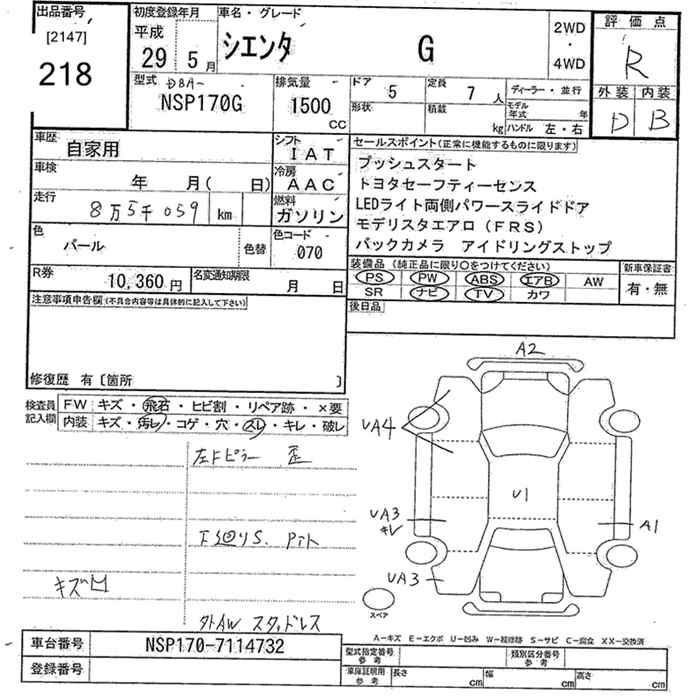 出品番号
[2147]
218
初度登録年月
平成
29 5月
車名・グレード
シエンタ G
2WD
・
4WD
評価点
R
外装 内装
D B
型式 DBA-
NSP170G
排気量
1500
CC
ドア 5
定員 7 人
形状
積載 kg
ディーラー・並行
モデル年式 年
ハンドル 左・右
車歴
自家用
シフト
IAT
車検
年 月( 日)
冷房
AAC
走行
8万5千059 km
燃料
ガソリン
色
パール
色替
色コード
070
R券
10,360円
名変通知期限
月 日
セールスポイント(正常に機能するものに限ります)
プッシュスタート
トヨタセーフティーセンス
LEDライト両側パワースライドドア
モデリスタエアロ(FRS)
バックカメラ アイドリングストップ
装備品(純正品に限り○をつけてください)
PS PW ABS エアB AW
SR ナビ TV カワ
新車保証書
有・無
後日品
注意事項申告欄(不具合内容等は具体的に記入して下さい)
修復歴 有〔箇所 〕
検査員記入欄
FW キズ・飛石・ヒビ割・リペア跡・×要
内装 キズ・汚レ・コゲ・穴・スレ・キレ・破レ
左Fピラー 歪
下廻りS. Pit
キズ凹
外AW スタッドレス
A2
UA4
U1
UA3
キレ
A1
UA3
スペア
A-キズ E-エクボ U-凹み W-補修跡 S-サビ C-腐食 XX-交換済
車台番号
NSP170-7114732
登録番号
型式指定番号
参考
類別区分番号
参考
車庫証明用
参考
長さ cm
幅 cm
高さ cm